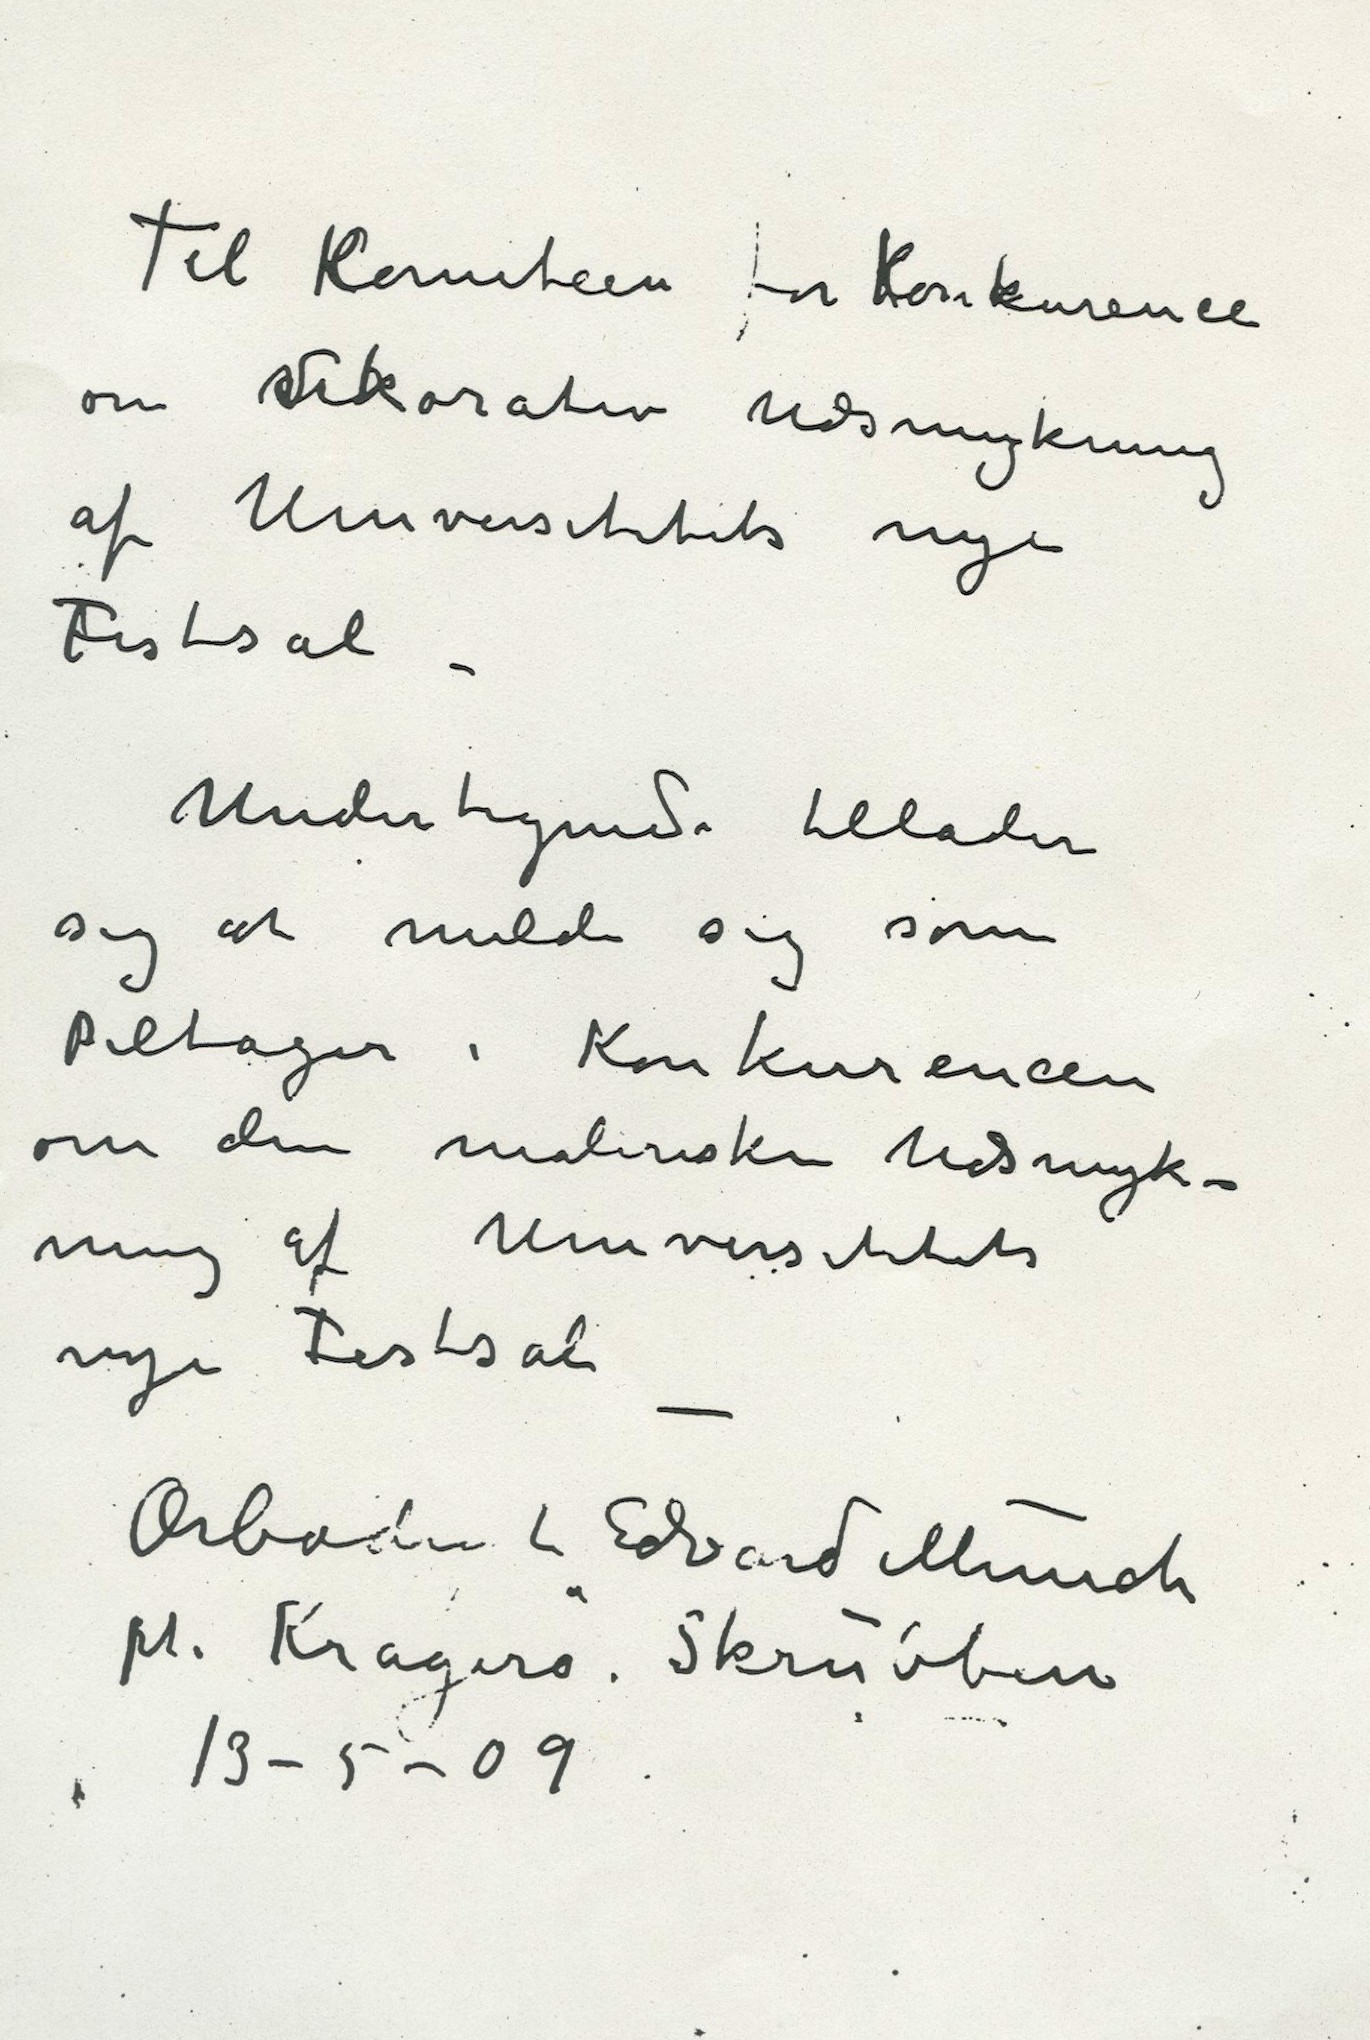 Til Komiteen for Konkurence
om dekorativ Udsmykning
af Universitetets nye
Festsal –
Undertegnede tillader
sig at melde sig som
Deltager i Konkurencen
om den maleriske Udsmyk-
ning af Universitetets
nye Festsal —
Ærbødigst Edvard Munch
pt. Kragerø. Skrubben
13–5–09